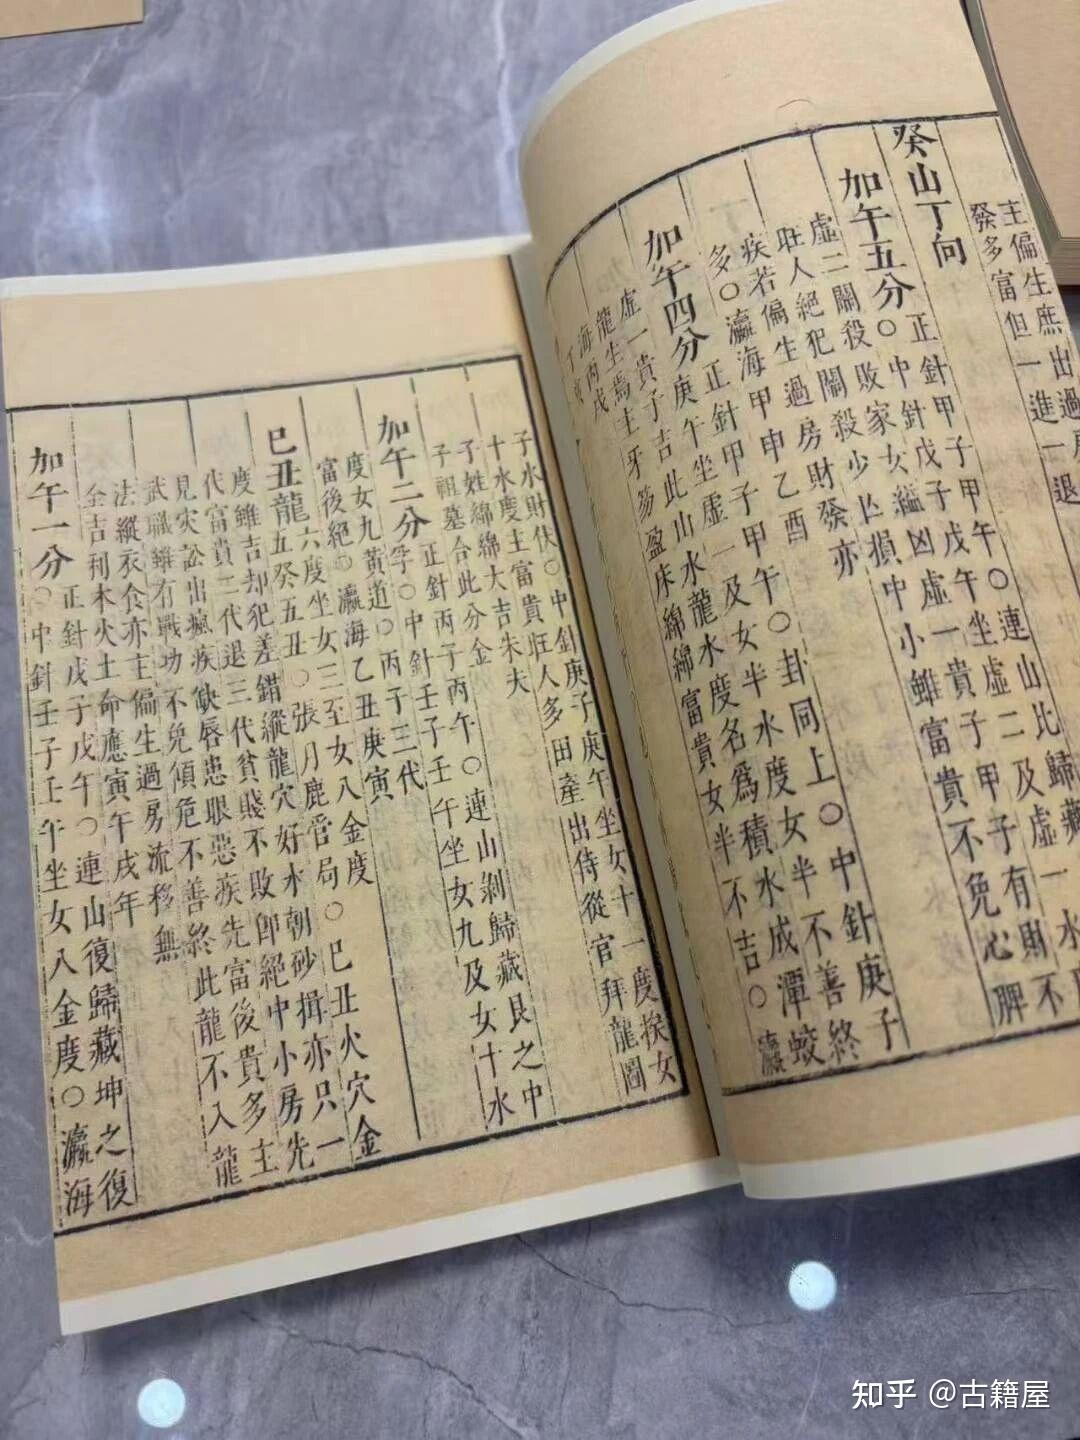 主偏生庶出過房
發多富但一進一退
癸山丁向
加午五分
正針甲子甲午○連山比歸藏
○中針戊子戊午坐虛二及虛一水
虛二關殺敗家女縊凶虛一貴子甲子有財不
旺人絕犯關殺少亡損中小雖富貴不免心脾
疾若偏生過房財發亦
多○瀛海甲申乙酉
加午四分
正針甲子甲午○卦同上○中針庚子
庚午坐虛一及女半水度女半不善終
虛一貴子吉此山水龍水度名為積水成潭蛟
龍生焉主牙笏盈床綿綿富貴女半不吉○瀛
海丙戌
丁亥
子水財伏○中針庚子庚午坐女十一度挨女
十水度主富貴旺人多田產出侍從官拜龍圖
子姓綿綿大吉朱夫
子祖墓合此分金
加午二分
正針丙子丙午○連山剝歸藏艮之中
孚○中針壬子壬午坐女九及女十水
度女九黃道○丙子三代
富後絕○瀛海乙丑庚寅
己丑龍
六度坐女三至女八金度
五癸五丑○張月鹿管局○己丑火穴金
度雖吉却犯差錯縱龍穴好水朝砂揖亦只一
代富貴二代退三代貧賤不敗卽絕中小房先
見灾訟出瘋疾缺唇患眼惡疾先富後貴多主
武職雖有戰功不免傾危不善終此龍不入龍
法縱衣食亦主偏生過房流移無
全吉利木火土命應寅午戌年
加午一分
正針戊子戊午○連山復歸藏坤之復
○中針壬子壬午坐女八金度○瀛海
知乎 @古籍屋